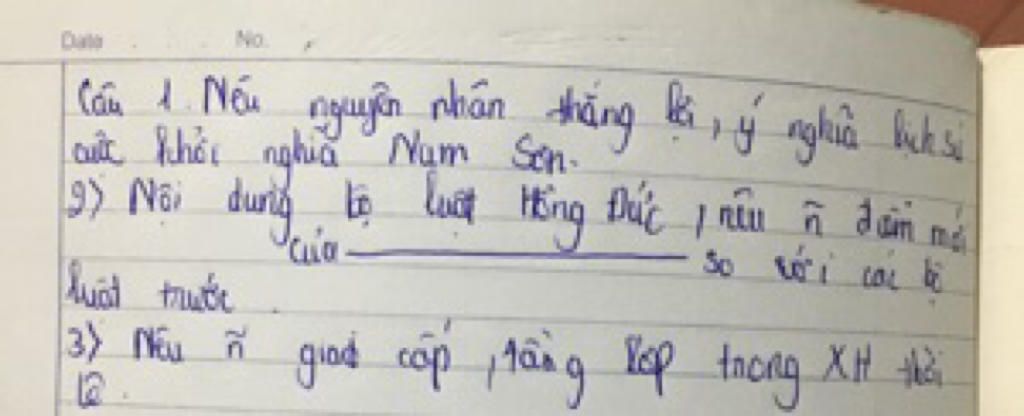 Date No.
Câu 1. Nêu nguyên nhân thắng lợi, ý nghĩa lịch sử
cuộc khởi nghĩa Nam Sơn.
2) Nội dung bộ luật Hồng Đức, nêu ñ điểm mới
của ——— so với các bộ
luật trước
3) Nêu ñ giai cấp, tầng lớp trong XH thời
Lê.